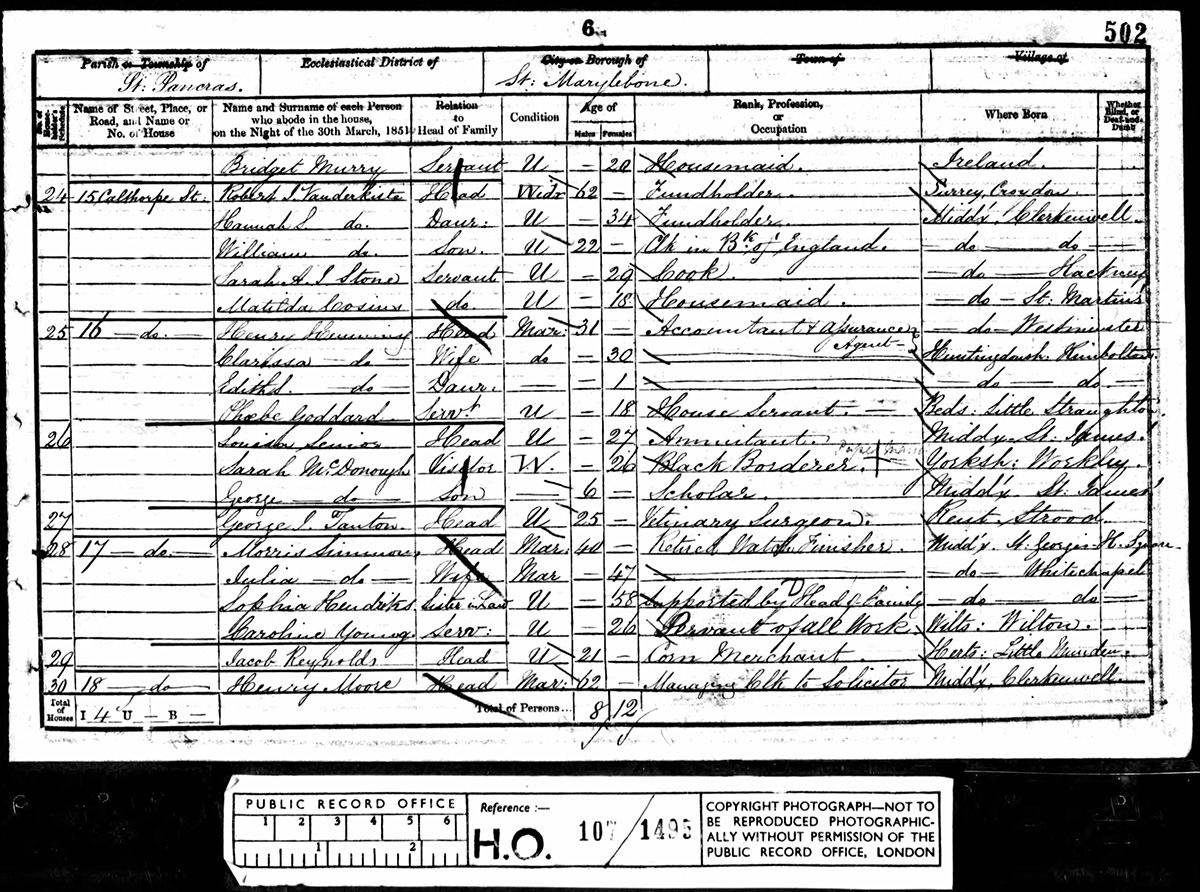 6
502
Parish or Township of
St. Pancras.
Ecclesiastical District of
City or Borough of
St. Marylebone.
Town of
Village of
No. of House-holder's Schedule
Name of Street, Place, or Road, and Name or No. of House
Name and Surname of each Person who abode in the house, on the Night of the 30th March, 1851
Relation to Head of Family
Condition
Age of
Males Females
Rank, Profession, or Occupation
Where Born
Whether Blind, or Deaf-and-Dumb
Bridget Murry Servant U – 20 Housemaid. Ireland.
24 15 Calthorpe St. Robert J. Vanderkiste Head Widr 62 – Fundholder. Surrey Croydon
Hannah S. do. Daur: U – 34 Fundholder. Middx Clerkenwell
William do. Son. U 22 – Clk in Bk. of England. – do – do –
Sarah A. J. Stone Servant U – 29 Cook. – do – Hackney
Matilda Cosins do. U – 18 Housemaid. – do – St. Martins
25 16 – do. Henry Hemming Head Mar: 31 – Accountant & Assurance Agent – do – Westminster
Clarissa – do Wife do – 30 – Huntingdonsh Kimbolton
Edith S. – do Daur. – – 1 – – do – do. –
Phœbe Goddard Servt U – 18 House Servant. – Beds: Little Straughton.
26 Louisa Senior Head U – 27 Annuitant. Middx St. James'
Sarah McDonough Visitor W. – 26 Black Borderer. Yorksh: Workley.
George – do – Son – 6 – Scholar. Middx St. James'
27 George J. Tanton. Head U 25 – Vetinary Surgeon. Kent, Strood
28 17 – do. – Morris Simmons Head Mar: 40 – Retired Watch Finisher. Middx St. Georges H. Square
Julia – do – Wife Mar – 47 – – do – Whitechapel
Sophia Hendriks Sister in Law U – 58 Supported by Head of Family – do – do –
Caroline Young. Serv: U – 26 Servant of all Work Wilts: Wilton.
29 Jacob Reynolds Head U 21 – Corn Merchant. Herts: Little Munden.
30 18 – do – Henry Moore Head Mar: 62 – Managing Clk to Solicitor Middx, Clerkenwell.
Total of Houses I 4 U – B – Total of Persons... 8 12
PUBLIC RECORD OFFICE
1 2 3 4 5 6
1 2
Reference :—
H.O. 107/1495
COPYRIGHT PHOTOGRAPH—NOT TO
BE REPRODUCED PHOTOGRAPHIC-
ALLY WITHOUT PERMISSION OF THE
PUBLIC RECORD OFFICE, LONDON